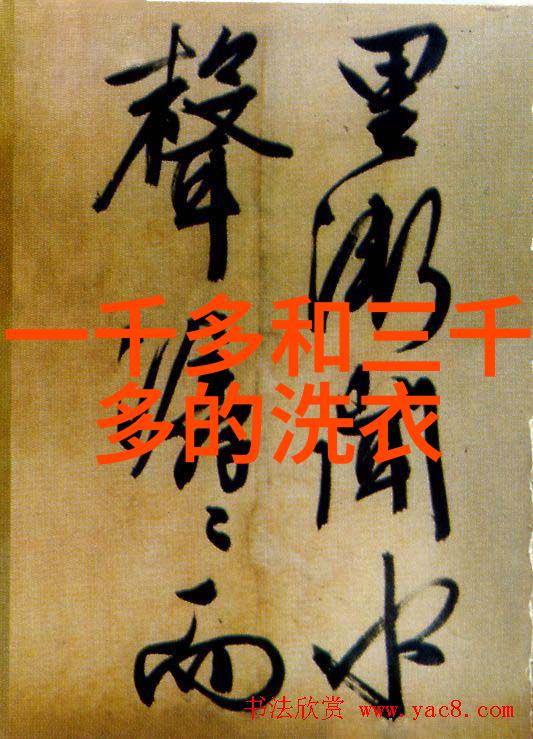 里漸聞水
聲潺〻而
一千多和三千
多的洗衣
书法欣赏 www.yac8.com